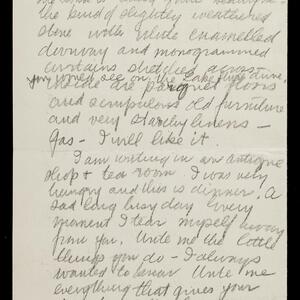 the kind of slightly weathered
stone with white enamelled
doorway and monogrammed
curtains stretched across
you would see on the Lake Shore Drive,
inside are parquet floors
and scrupulous old furniture
and very starchy linens –
Gas – I will like it.
I am writing in an antique
shop & tea room. I was very
hungry and this is dinner. A
sad long busy day. Every
moment I tear myself away
from you. Write me the little
things you do – I always
wanted to know. Write me
everything that gives your